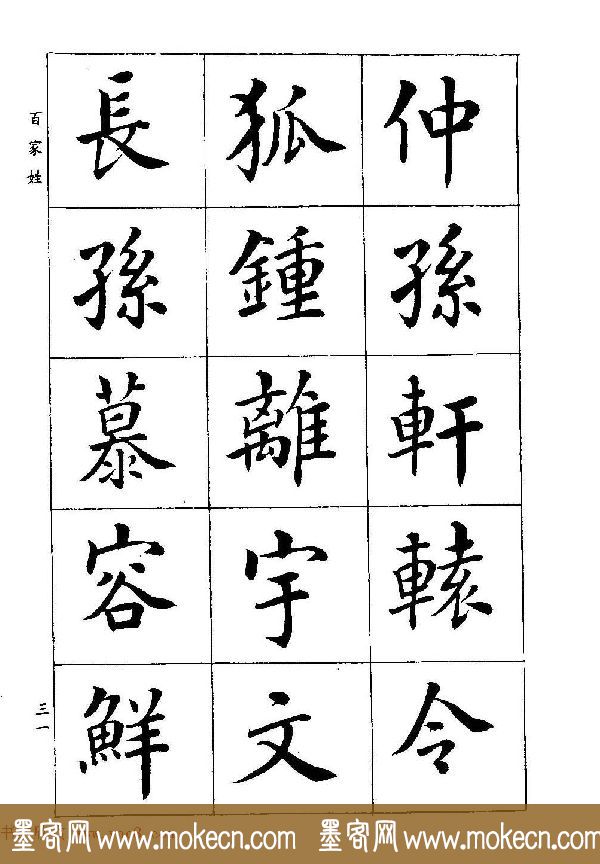 仲孫軒轅令
狐鍾離宇文
長孫慕容鮮
百家姓
三一
墨客网 www.mokecn.com 墨客网 www.mokecn.com